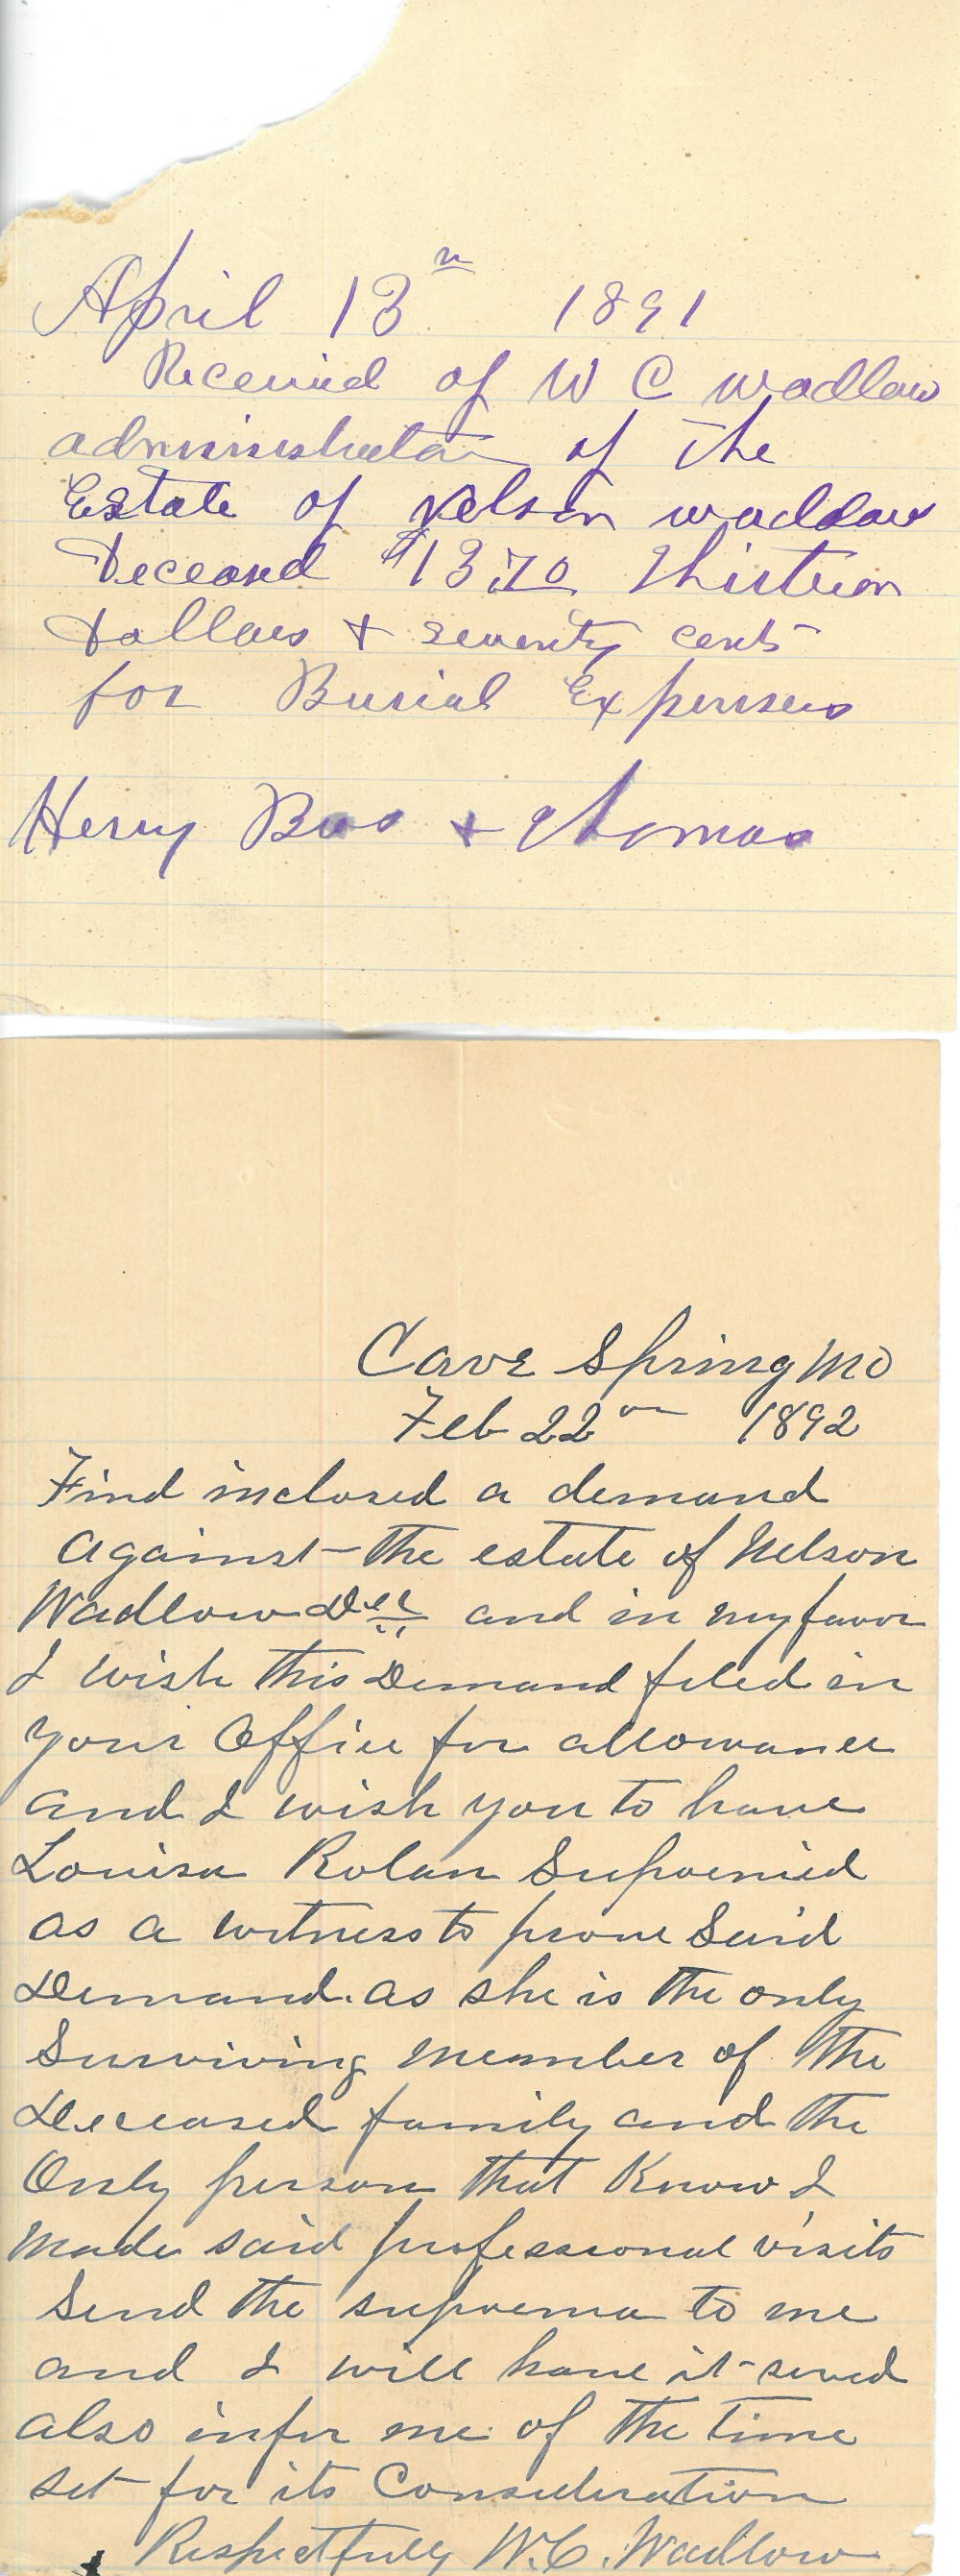 April 13th 1891
Received of W C Wadlow
administrator of the
Estate of Nelson Wadlow
Deceased $13.70 Thirteen
Dollars + seventy cents
for Burial Expenses
Henry Bros + Thomas
Cave Spring MO
Feb 22nd 1892
Find inclosed a demand
against the estate of Nelson
Wadlow Dec and in my favor
I wish this Demand filed in
your Office for allowance
and I wish you to have
Louisa Rolan Supoenied
as a witness to prove Said
Demand. as she is the only
Surviving member of the
Deceased family and the
Only person that Know I
made said professional visits
Send the supoena to me
and I will have it served
also infor me of the time
set for its Consideration
Respectfully W.C. Wadlow